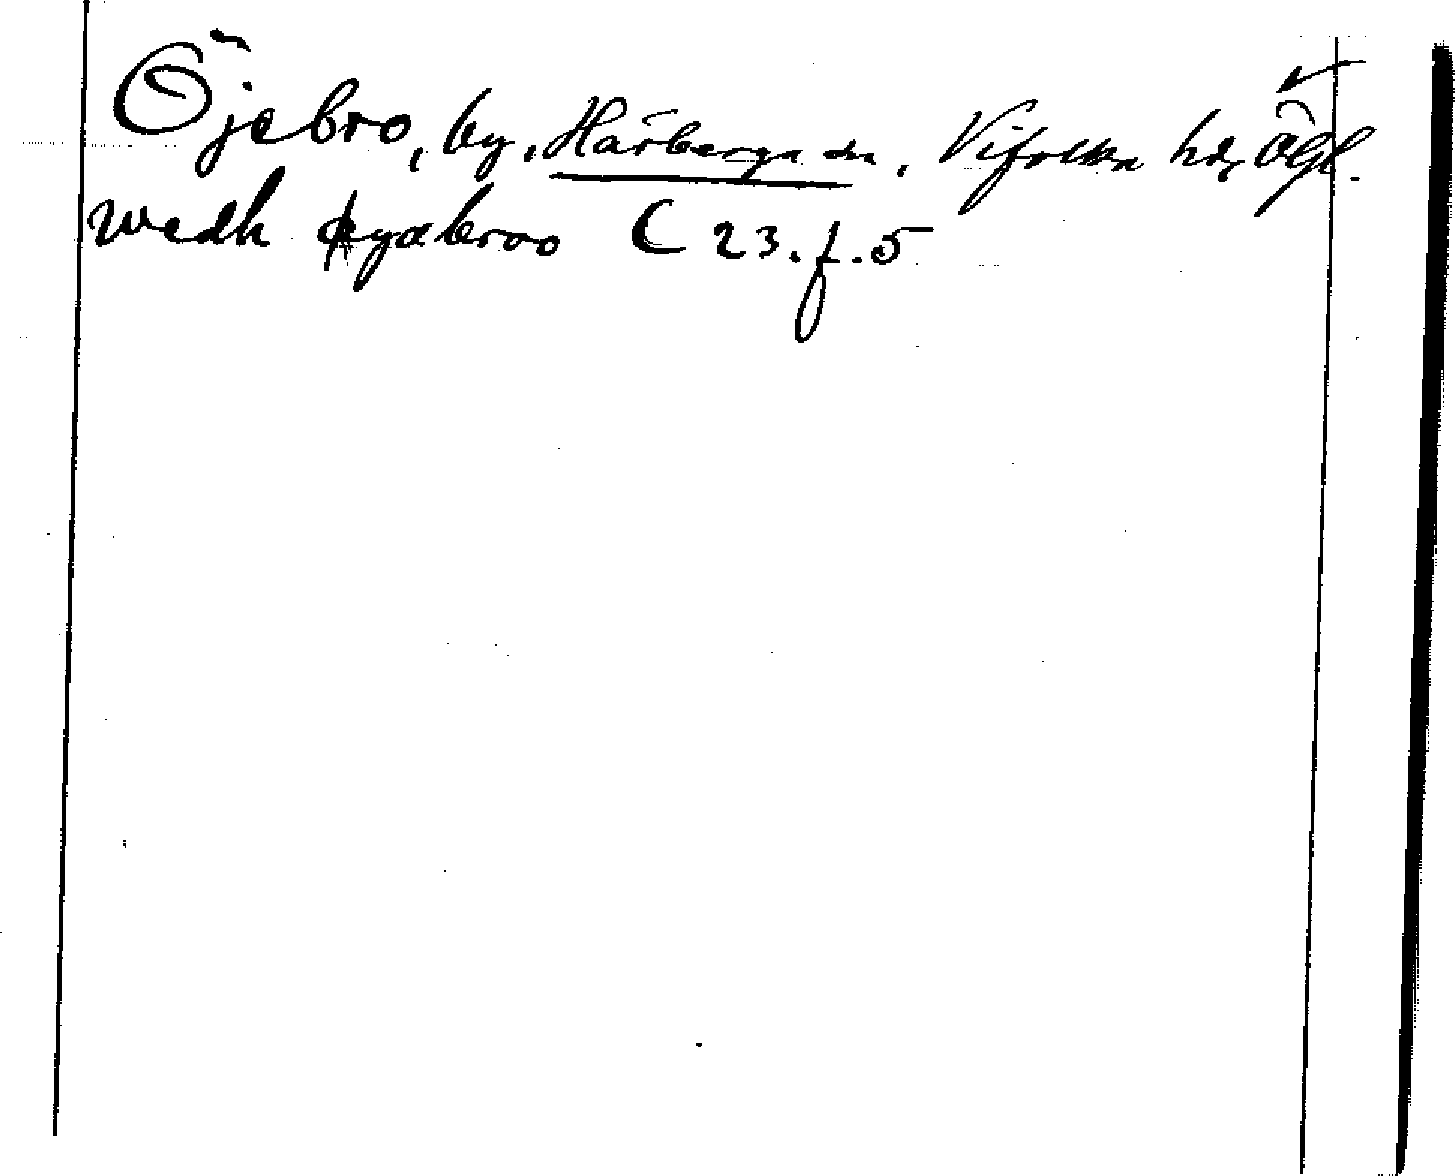 Öjebro, by, Härberga sn, Vifolka hd, Ögl.
wedh øyabroo C 23. f. 5